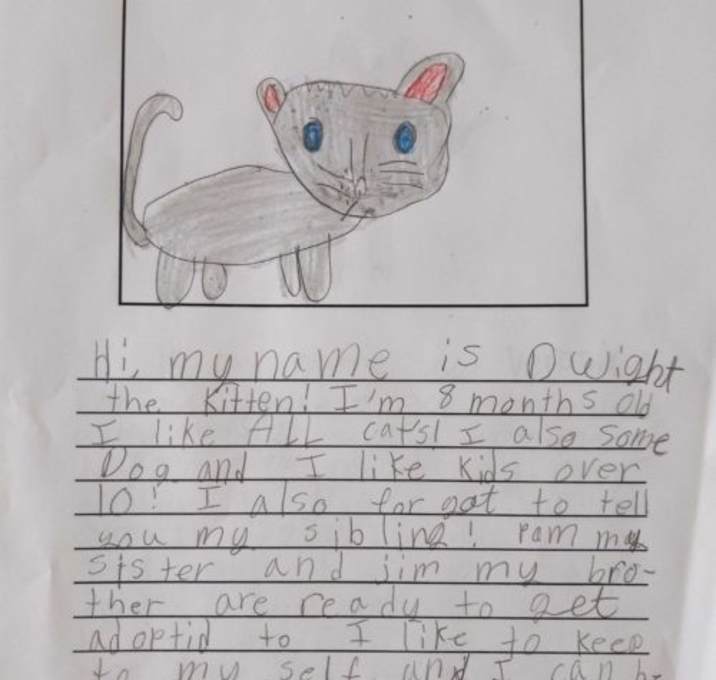 Hi, my name is Dwight
the kitten! I'm 8 months old
I like ALL cats! I also some
Dog and I like kids over
10! I also forgot to tell
you my sibling! Pam my
sister and jim my bro-
ther are ready to get
adoptid to I like to keep
to my self and I can b-